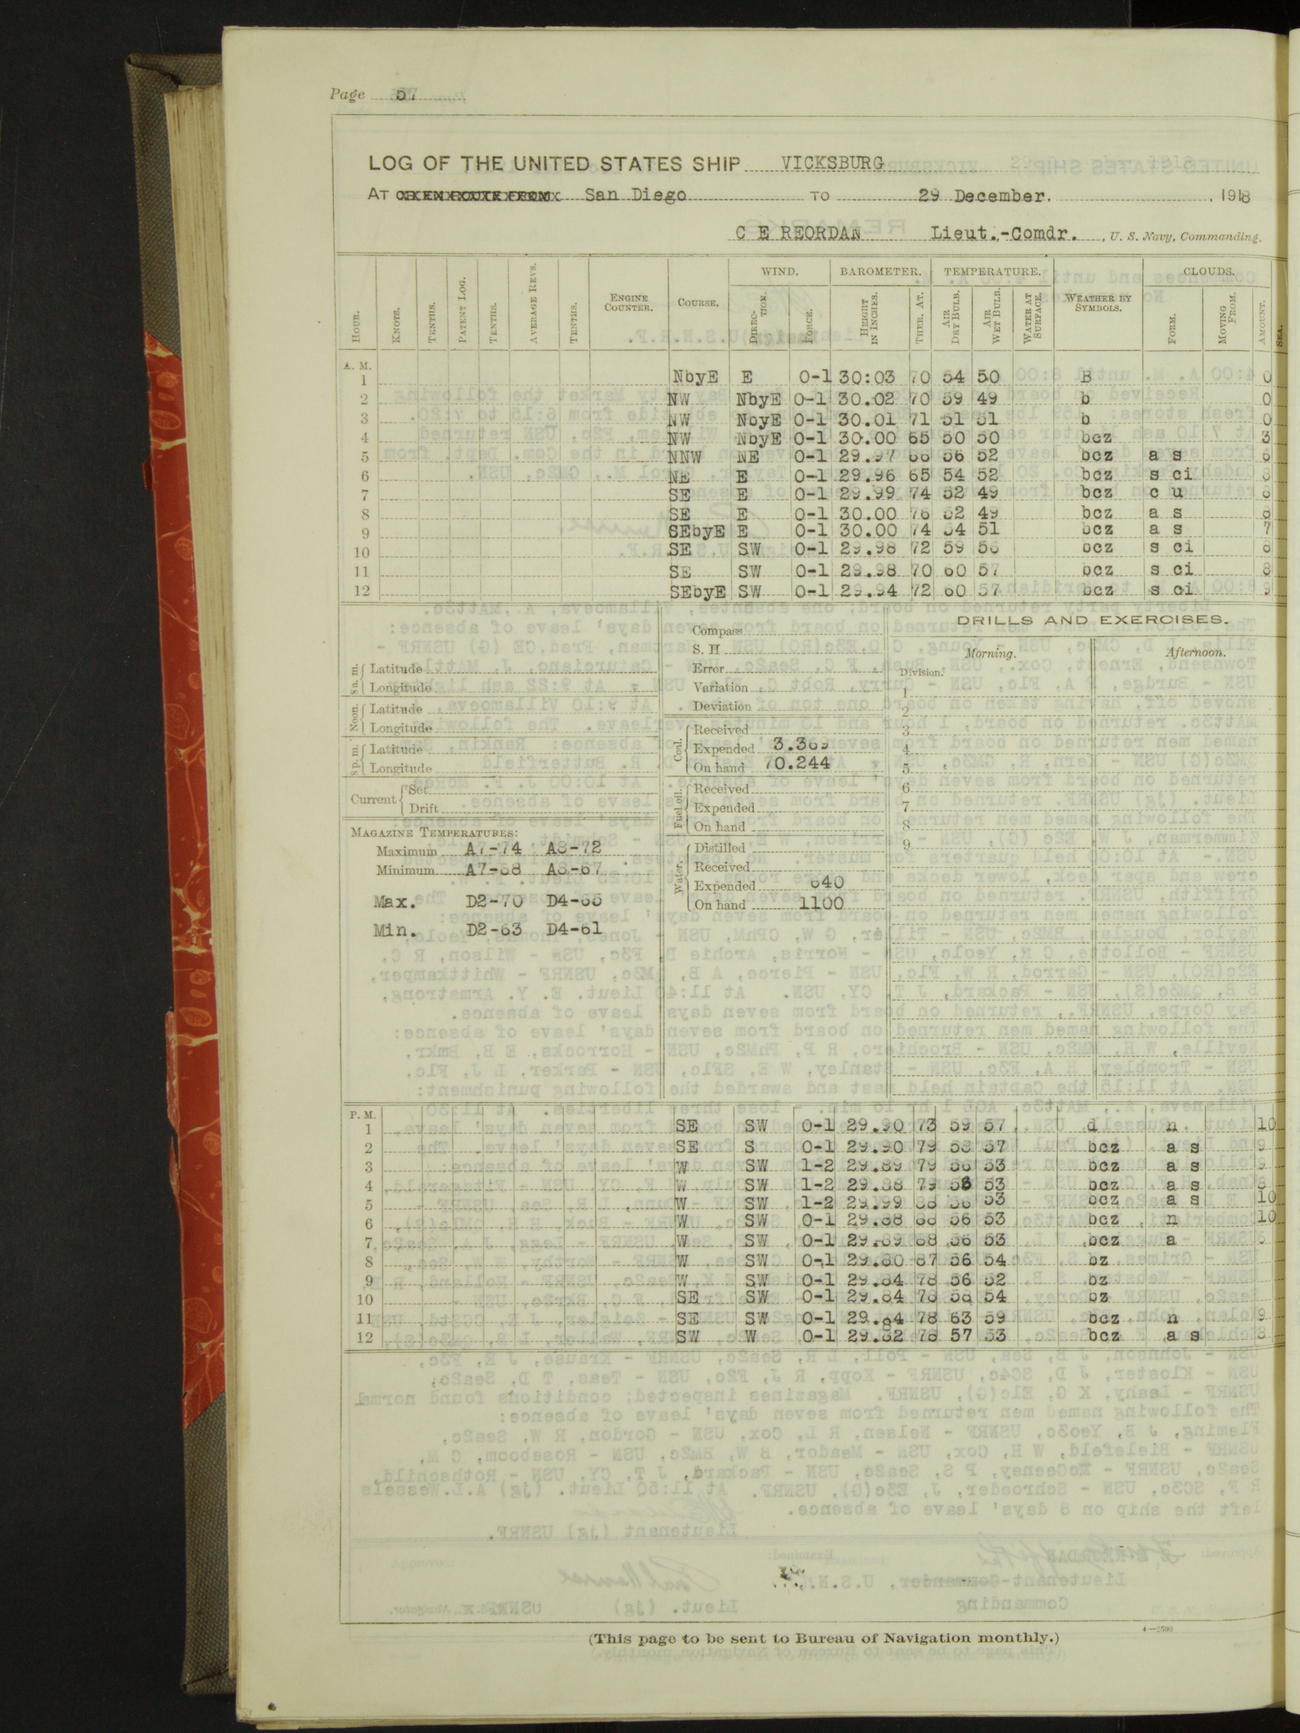 Page 57
LOG OF THE UNITED STATES SHIP VICKSBURG
AT San Diego TO 29 December. , 1918
C E REORDAN Lieut.-Comdr. , U. S. Navy, Commanding.
WIND. BAROMETER. TEMPERATURE. CLOUDS.
HOUR. KNOTS. TENTHS. PATENT LOG. TENTHS. AVERAGE REVS. TENTHS. ENGINE COUNTER. COURSE. DIREC-TION. FORCE. HEIGHT IN INCHES. THER. AT. AIR DRY BULB. AIR WET BULB. WATER AT SURFACE. WEATHER BY SYMBOLS. FORM. MOVING FROM. AMOUNT. SEA.
A. M.
1 NbyE E 0-1 30:03 70 54 50 B 0
2 NW NbyE 0-1 30.02 70 59 49 b 0
3 NW NbyE 0-1 30.01 71 51 51 b 0
4 NW NbyE 0-1 30.00 65 50 50 bcz 3
5 NNW NE 0-1 29.97 66 56 52 bcz a s
6 NE E 0-1 29.96 65 54 52 bcz s ci
7 SE E 0-1 29.99 74 52 49 bcz c u
8 SE E 0-1 30.00 76 49 bcz a s
9 SEbyE E 0-1 30.00 74 54 51 bcz a s 7
10 SE SW 0-1 29.98 72 59 56 bcz s ci
11 SE SW 0-1 29.98 70 60 57 bcz s ci 8
12 SEbyE SW 0-1 29.94 72 60 57 bcz s ci 9
Compass
S. H
Error
Variation
Deviation
8 a. m. Latitude
Longitude
Noon. Latitude
Longitude
8 p. m. Latitude
Longitude
Current Set
Drift
Coal. Received
Expended 3.369
On hand 70.244
Fuel oil. Received
Expended
On hand
Water. Distilled
Received
Expended 640
On hand 1100
MAGAZINE TEMPERATURES:
Maximum A7-74 A8-72
Minimum A7-68 A8-67
Max. D2-70 D4-66
Min. D2-63 D4-61
DRILLS AND EXERCISES.
Morning. Afternoon.
Division.
1
2
3
4
5
6
7
8
9
P. M.
1 SE SW 0-1 29.90 73 59 57 d n 10
2 SE S 0-1 29.90 79 58 57 bcz a s 9
3 W SW 1-2 29.89 79 56 53 bcz a s 9
4 W SW 1-2 29.88 79 58 53 bcz a s
5 W SW 1-2 29.99 68 56 53 bcz a s 10
6 W SW 0-1 29.88 68 56 53 bcz n 10
7 W SW 0-1 29.89 68 56 53 bcz a
8 W SW 0-1 29.80 67 56 54 bz
9 W SW 0-1 29.84 78 56 52 bz
10 SE SW 0-1 29.84 78 58 54 bz
11 SE SW 0-1 29.84 78 63 59 bcz n 9
12 SW W 0-1 29.82 78 57 53 bcz a s 8
(This page to be sent to Bureau of Navigation monthly.)